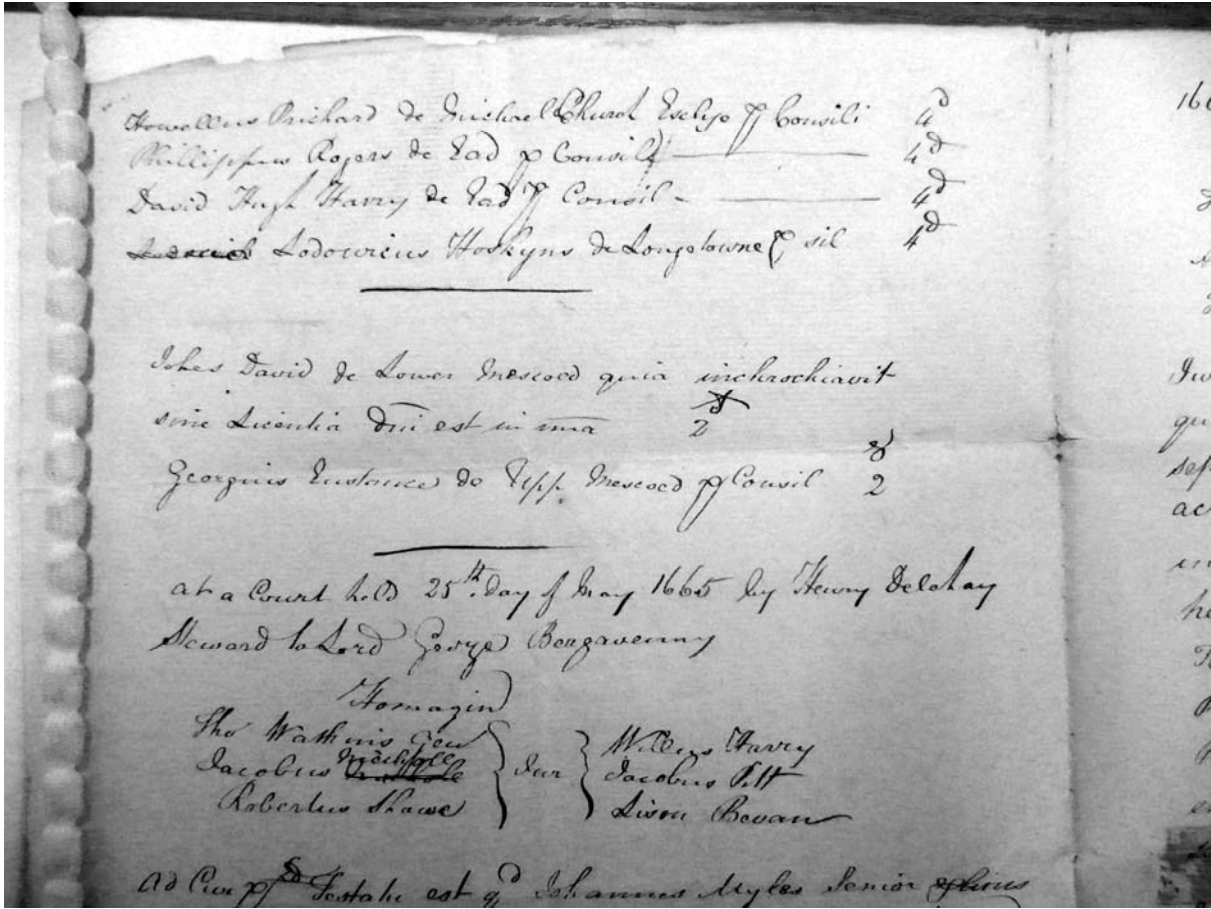 Howellus Prichard de Michael Church Esclye p Consili 4d
Phillippus Rogers de Ead p Consil 4d
David Hugh Harry de Ead p Consil - 4d
Lodowicus Hoskyns de Longtowne p sil 4d
Johes David de Lower Mescoed quia inchrochiavit
sine Licentia Dni est in mia 2d
Georgius Eustance de Upp. Mescoed p Consil 2d
at a Court held 25th. day of May 1665 by Henry Delahay
Steward to Lord George Bergavenny
Homagin
Tho Watkins Gen
Jacobus
Robertus Shawe
Jur
Willus Harry
Jacobus Pitt
Lison Bevan
Ad Cur Testatu est qd Johannes Myles Senior
166
qu
ac
in
he